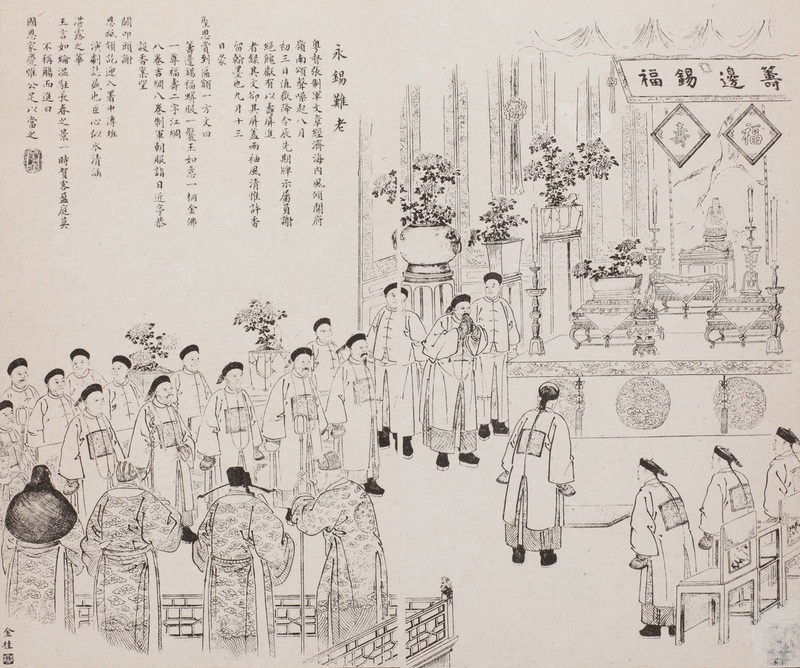 永錫難老
粵督張制軍文章經濟海內風傾開府
嶺南頌聲噪起八月
初三日值嶽降今辰先期牌示屬員謝
絕餽獻有以壽屏進
者錄其文卻其屏蓋兩袖風清惟許香
留翰墨也九月十三
日蒙
聖恩賞到匾額一方文曰
籌邊錫福蟒服一襲玉如意一柄金佛
一尊福壽二字江綢
八卷吉綢八卷制軍朝服詣日近亭恭
設香案望
闕叩頭謝
恩祗領訖迎入署中傳班
演劇誌盛此臣心似水清涵
湛露之華
王言如綸溫駐長春之景一時賀客盈庭莫
不稱觴而進曰
國恩家慶惟公足以當之
籌邊錫福
福
壽
金桂